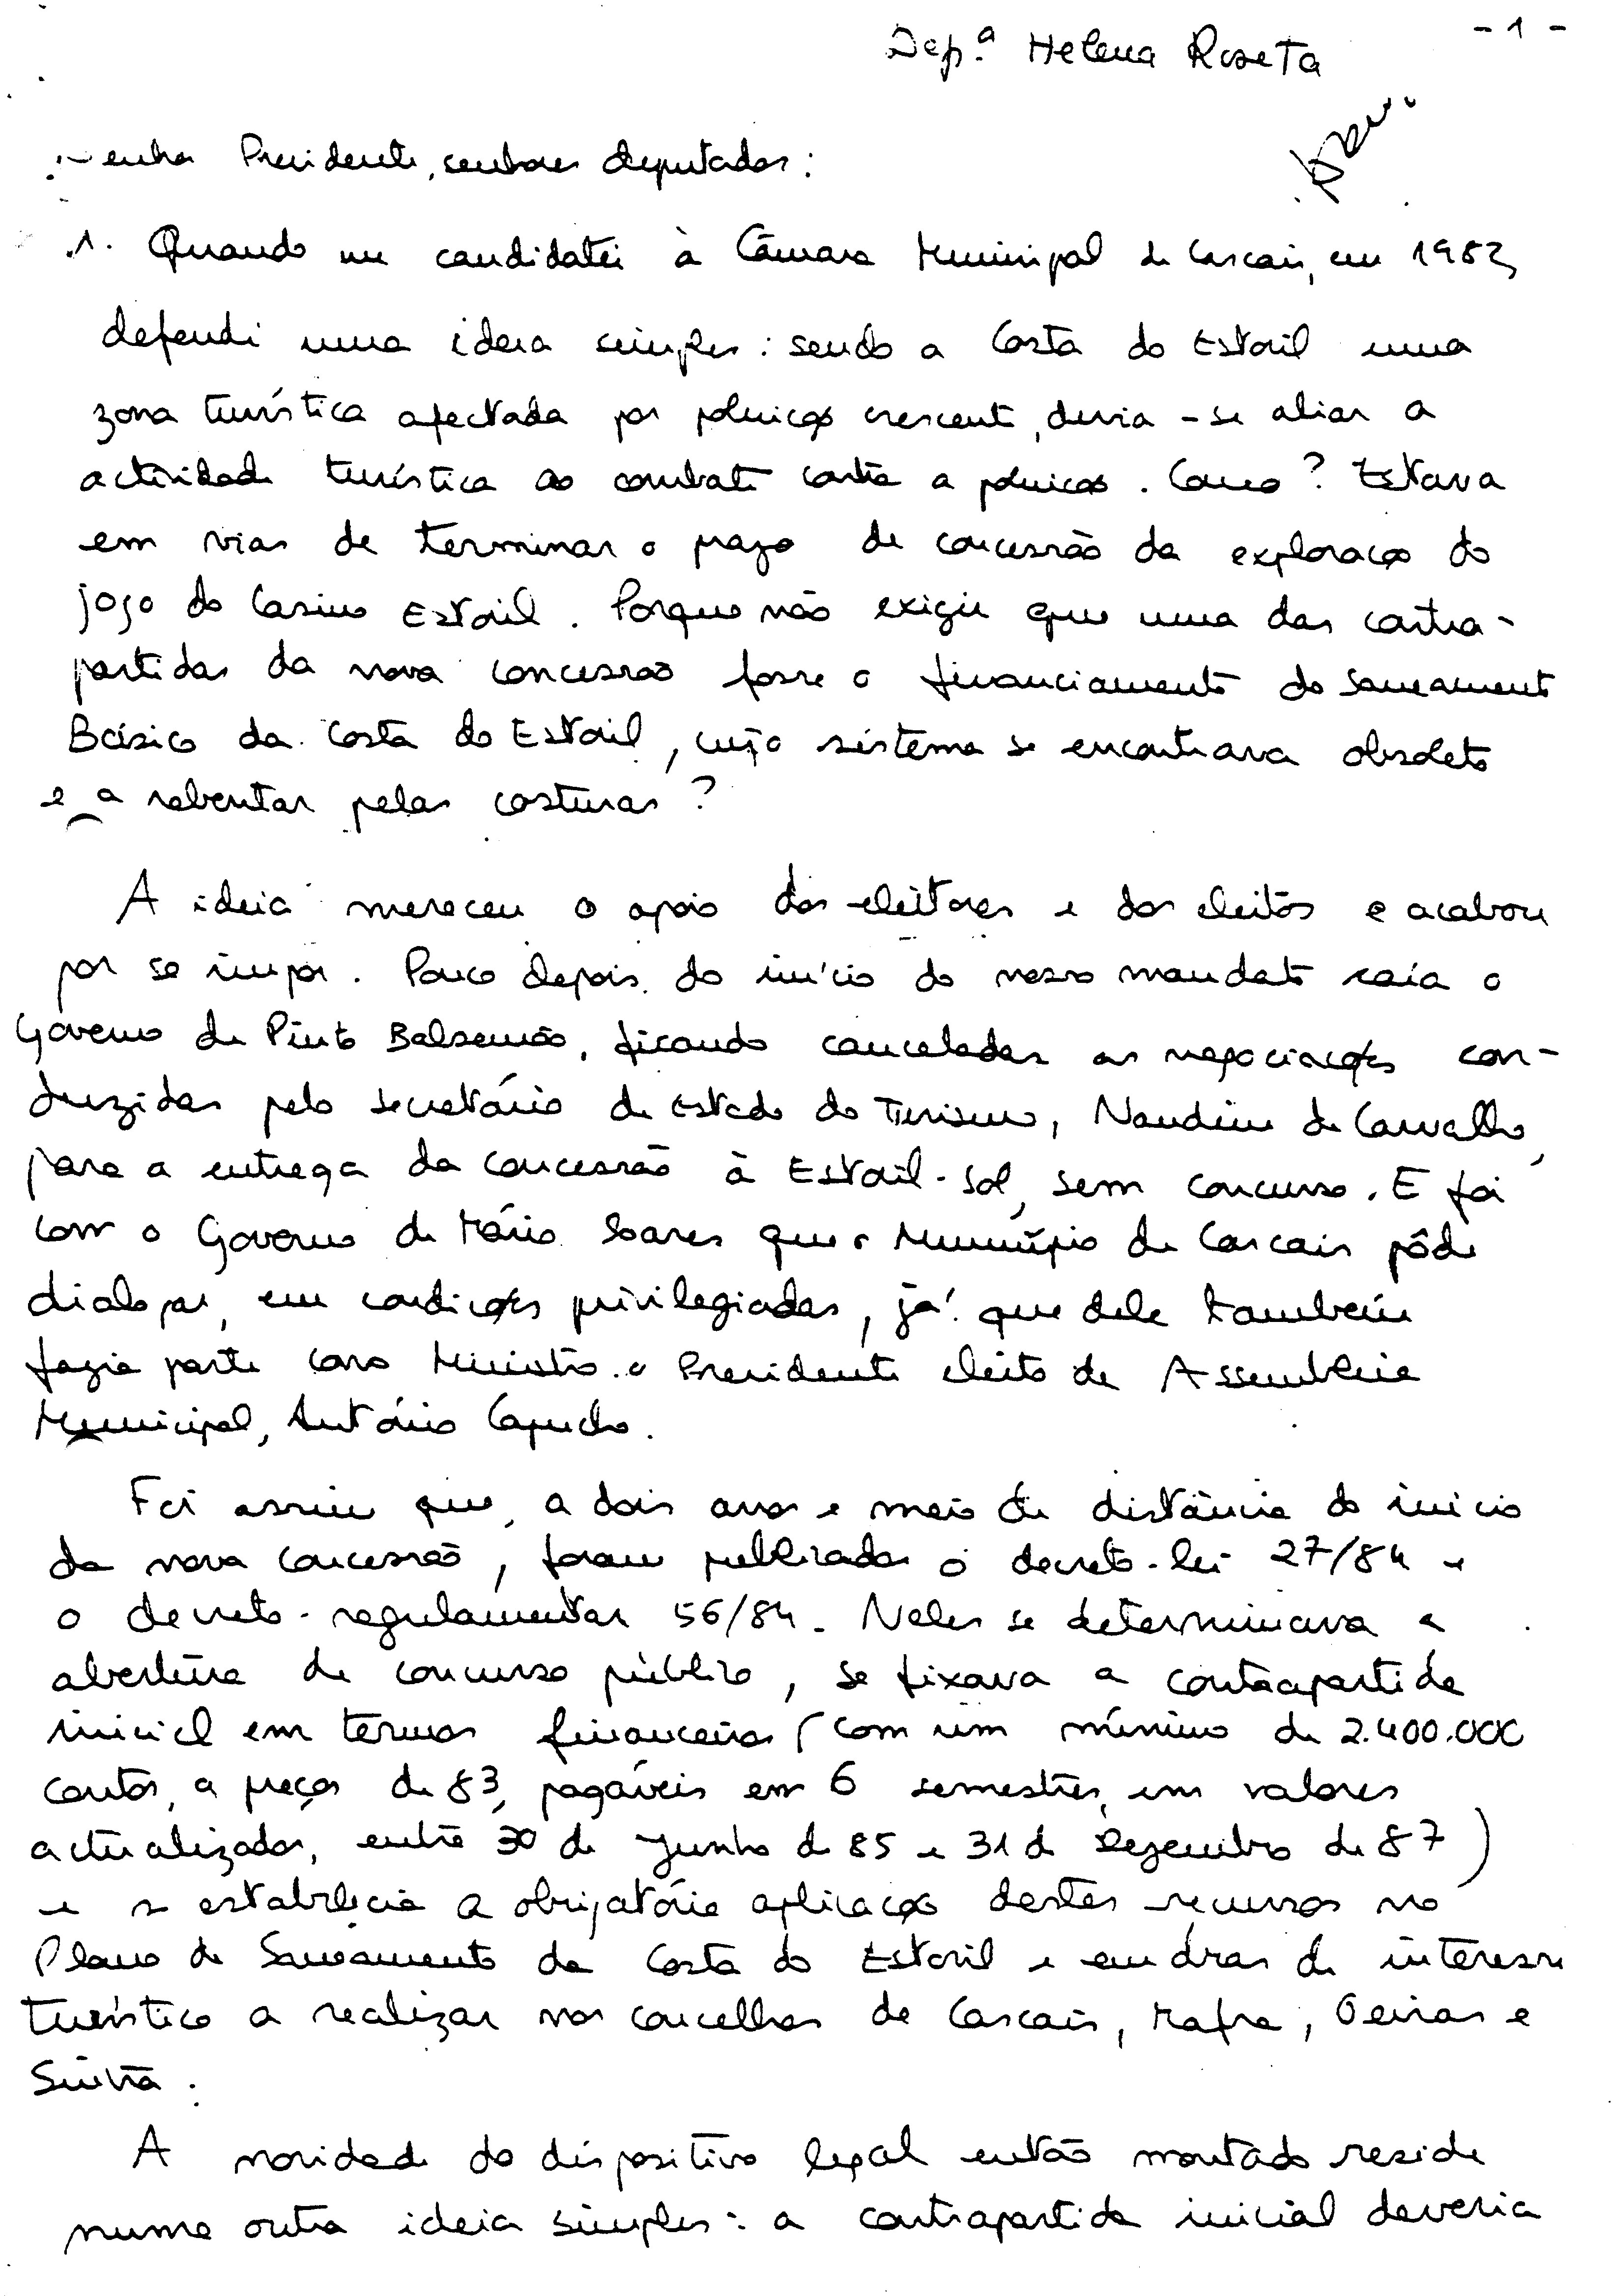 - 1 -
Dep.ª Helena Roseta
Senhora Presidente, senhores deputados:
1. Quando me candidatei à Câmara Municipal de Cascais, em 1982,
defendi uma ideia simples: sendo a Costa do Estoril uma
zona turística afectada por poluição crescente, devia-se aliar a
actividade turística ao combate contra a poluição. Como? Estava
em vias de terminar o prazo de concessão da exploração do
jogo do Casino Estoril. Porque não exigir que uma das contra-
partidas da nova concessão fosse o financiamento do Saneamento
Básico da Costa do Estoril, cujo sistema se encontrava obsoleto
e a rebentar pelas costuras?
A ideia mereceu o apoio dos eleitores e dos eleitos e acabou
por se impor. Pouco depois do início do nosso mandato caía o
Governo de Pinto Balsemão, ficando canceladas as negociações con-
duzidas pelo secretário de Estado do Turismo, Nandim de Carvalho,
para a entrega da concessão à Estoril-Sol, sem concurso. E foi
com o Governo de Mário Soares que o Município de Cascais pôde
dialogar, em condições privilegiadas, já que dele também
fazia parte como Ministro o Presidente eleito da Assembleia
Municipal, António Capucho.
Foi assim que, a dois anos e meio de distância do início
da nova concessão, foram publicados o decreto-lei 27/84 e
o decreto-regulamentar 56/84. Neles se determinava a
abertura de concurso público, se fixava a contrapartida
inicial em termos financeiros (com um mínimo de 2.400.000
contos, a preços de 83, pagáveis em 6 semestres, em valores
actualizados, entre 30 de Junho de 85 e 31 de Dezembro de 87)
e se estabelecia a obrigatória aplicação destes recursos no
Plano de Saneamento da Costa do Estoril e em obras de interesse
turístico a realizar nos concelhos de Cascais, Mafra, Oeiras e
Sintra.
A novidade do dispositivo legal então montado reside
numa outra ideia simples: a contrapartida inicial deveria